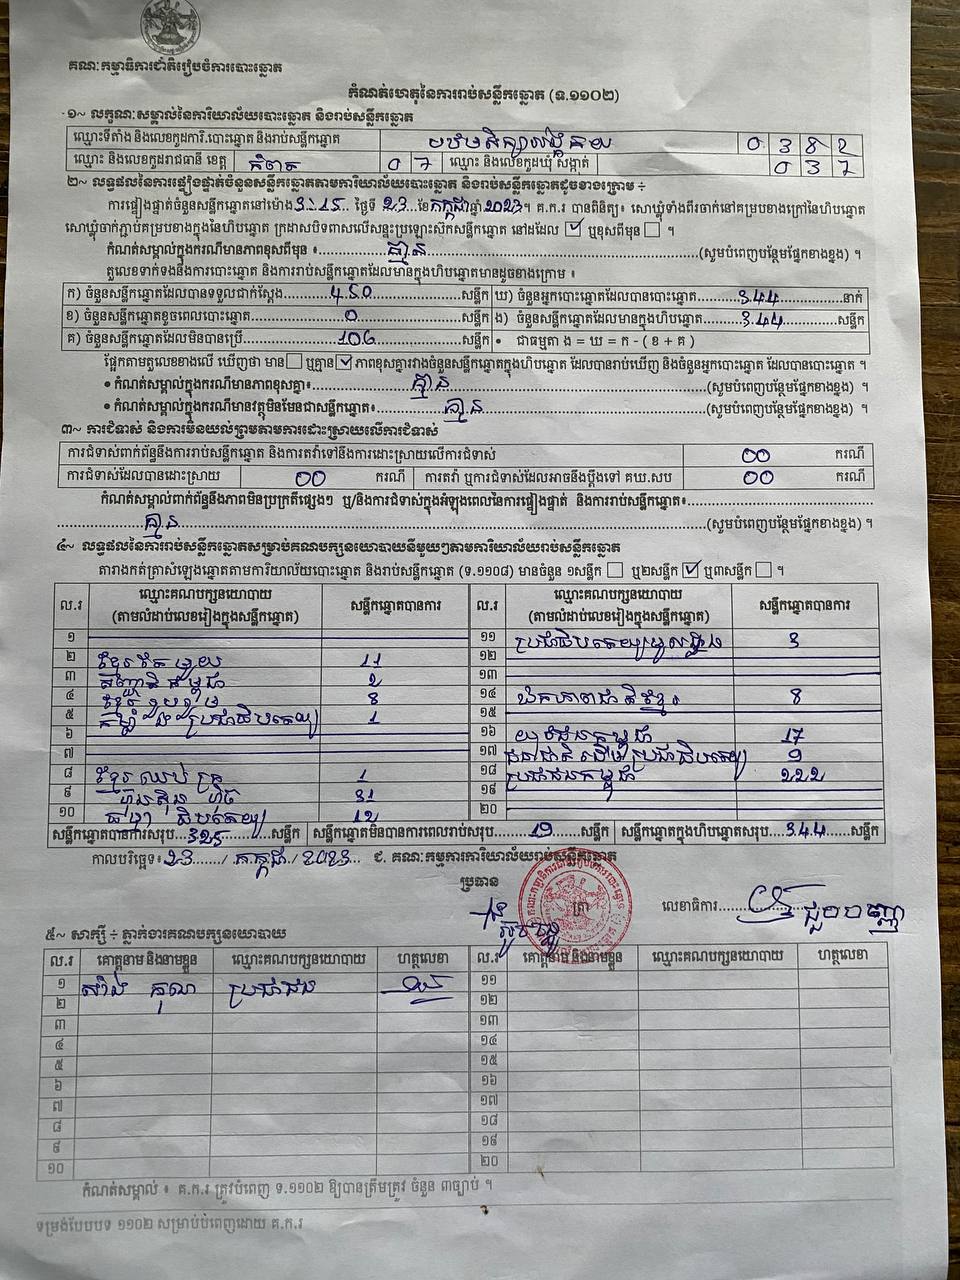 គណៈកម្មាធិការជាតិរៀបចំការបោះឆ្នោត
កំណត់ហេតុនៃការរាប់សន្លឹកឆ្នោត (ទ.១១០២)
១~ លក្ខណៈសម្គាល់នៃការិយាល័យបោះឆ្នោត និងរាប់សន្លឹកឆ្នោត
ឈ្មោះទីតាំង និងលេខកូដការិ.បោះឆ្នោត និងរាប់សន្លឹកឆ្នោត 0 3 8 2
ឈ្មោះ និងលេខកូដរាជធានី ខេត្ត កំពត 0 7 ឈ្មោះ និងលេខកូដឃុំ សង្កាត់ 0 3 7
២~ លទ្ធផលនៃការផ្ទៀងផ្ទាត់ចំនួនសន្លឹកឆ្នោតតាមការិយាល័យបោះឆ្នោត និងរាប់សន្លឹកឆ្នោតដូចខាងក្រោម ÷
ការផ្ទៀងផ្ទាត់ចំនួនសន្លឹកឆ្នោតនៅម៉ោង 3:15 ថ្ងៃទី 23 ខែ កក្កដា ឆ្នាំ 2023។ គ.ក.រ បានពិនិត្យ៖ សោឃ្លុំទាំងពីរចាក់នៅគម្របខាងក្រៅនៃហិបឆ្នោត
សោឃ្លុំចាក់ភ្ជាប់គម្របខាងក្នុងនៃហិបឆ្នោត ក្រដាសបិទពាសលើសន្ទះប្រឡោះស៊កសន្លឹកឆ្នោត នៅដដែល ✓ ឬខុសពីមុន ។
កំណត់សម្គាល់ក្នុងករណីមានភាពខុសពីមុន ៖ គ្មាន (សូមបំពេញបន្ថែមផ្នែកខាងខ្នង) ។
តួលេខទាក់ទងនឹងការបោះឆ្នោត និងការរាប់សន្លឹកឆ្នោតដែលមានក្នុងហិបឆ្នោតមានដូចខាងក្រោម ៖
ក) ចំនួនសន្លឹកឆ្នោតដែលបានទទួលជាក់ស្តែង 450 សន្លឹក ឃ) ចំនួនអ្នកបោះឆ្នោតដែលបានបោះឆ្នោត 344 នាក់
ខ) ចំនួនសន្លឹកឆ្នោតខូចពេលបោះឆ្នោត 0 សន្លឹក ង) ចំនួនសន្លឹកឆ្នោតដែលមានក្នុងហិបឆ្នោត 344 សន្លឹក
គ) ចំនួនសន្លឹកឆ្នោតដែលមិនបានប្រើ 106 សន្លឹក • ជាធម្មតា ង = ឃ = ក - ( ខ + គ )
ផ្អែកតាមតួលេខខាងលើ ឃើញថា មាន ឬគ្មាន ✓ ភាពខុសគ្នារវាងចំនួនសន្លឹកឆ្នោតក្នុងហិបឆ្នោត ដែលបានរាប់ឃើញ និងចំនួនអ្នកបោះឆ្នោតដែលបានបោះឆ្នោត ។
• កំណត់សម្គាល់ក្នុងករណីមានភាពខុសគ្នា៖ គ្មាន (សូមបំពេញបន្ថែមផ្នែកខាងខ្នង) ។
• កំណត់សម្គាល់ក្នុងករណីមានវត្ថុមិនមែនជាសន្លឹកឆ្នោត៖ គ្មាន (សូមបំពេញបន្ថែមផ្នែកខាងខ្នង) ។
៣~ ការជំទាស់ និងការមិនយល់ព្រមតាមការដោះស្រាយលើការជំទាស់
ការជំទាស់ពាក់ព័ន្ធនឹងការរាប់សន្លឹកឆ្នោត និងការតវ៉ាទៅនឹងការដោះស្រាយលើការជំទាស់ 00 ករណី
ការជំទាស់ដែលបានដោះស្រាយ 00 ករណី ការតវ៉ា ឬការជំទាស់ដែលអាចនឹងប្តឹងទៅ គឃ.សប 00 ករណី
កំណត់សម្គាល់ពាក់ព័ន្ធនឹងភាពមិនប្រក្រតីផ្សេងៗ ឬ/និងការជំទាស់ក្នុងអំឡុងពេលនៃការផ្ទៀងផ្ទាត់ និងការរាប់សន្លឹកឆ្នោត៖
គ្មាន (សូមបំពេញបន្ថែមផ្នែកខាងខ្នង) ។
៤~ លទ្ធផលនៃការរាប់សន្លឹកឆ្នោតសម្រាប់គណបក្សនយោបាយនីមួយៗតាមការិយាល័យរាប់សន្លឹកឆ្នោត
តារាងកត់ត្រាសំឡេងឆ្នោតតាមការិយាល័យបោះឆ្នោត និងរាប់សន្លឹកឆ្នោត (ទ.១១០៨) មានចំនួន ១សន្លឹក ឬ២សន្លឹក ✓ ឬ៣សន្លឹក ។
ល.រ ឈ្មោះគណបក្សនយោបាយ (តាមលំដាប់លេខរៀងក្នុងសន្លឹកឆ្នោត) សន្លឹកឆ្នោតបានការ ល.រ ឈ្មោះគណបក្សនយោបាយ (តាមលំដាប់លេខរៀងក្នុងសន្លឹកឆ្នោត) សន្លឹកឆ្នោតបានការ
១ ១១ ប្រជាធិបតេយ្យមូលដ្ឋាន 3
២ ខ្មែរតែមួយ 11 ១២
៣ សញ្ជាតិកម្ពុជា 2 ១៣
៤ ខ្មែររួបរួម 8 ១៤ ឯកភាពជាតិខ្មែរ 8
៥ កម្លាំងប្រជាធិបតេយ្យ 1 ១៥
៦ ១៦ យុវជនកម្ពុជា 17
៧ ១៧ ជនជាតិដើមប្រជាធិបតេយ្យ 9
៨ ខ្មែរឈប់ក្រ 1 ១៨ ប្រជាជនកម្ពុជា 222
៩ ហ៊្វុនស៊ិនប៉ិច 31 ១៩
១០ ធម្មាធិបតេយ្យ 12 ២០
សន្លឹកឆ្នោតបានការសរុប 325 សន្លឹក សន្លឹកឆ្នោតមិនបានការពេលរាប់សរុប 19 សន្លឹក សន្លឹកឆ្នោតក្នុងហិបឆ្នោតសរុប 344 សន្លឹក
កាលបរិច្ឆេទ៖ 23 / កក្កដា / 2023 ជ. គណៈកម្មការការិយាល័យរាប់សន្លឹកឆ្នោត
ប្រធាន ត្រា លេខាធិការ
៥~ សាក្សី ÷ ភ្នាក់ងារគណបក្សនយោបាយ
ល.រ គោត្តនាម និងនាមខ្លួន ឈ្មោះគណបក្សនយោបាយ ហត្ថលេខា ល.រ គោត្តនាម និងនាមខ្លួន ឈ្មោះគណបក្សនយោបាយ ហត្ថលេខា
១ សាំង គុណ ប្រជាជន ១១
២ ១២
៣ ១៣
៤ ១៤
៥ ១៥
៦ ១៦
៧ ១៧
៨ ១៨
៩ ១៩
១០ ២០
កំណត់សម្គាល់ ៖ គ.ក.រ ត្រូវបំពេញ ទ.១១០២ ឱ្យបានត្រឹមត្រូវ ចំនួន ៣ច្បាប់ ។
ទម្រង់បែបបទ ១១០២ សម្រាប់បំពេញដោយ គ.ក.រ